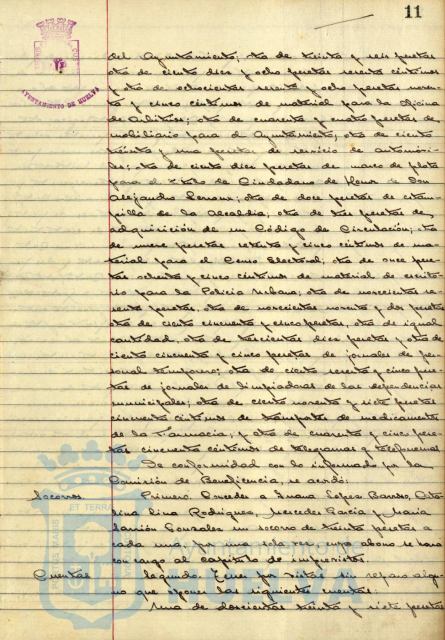 11
AYUNTAMIENTO DE HUELVA
del Ayuntamiento; otra de treinta y seis pesetas
otra de ciento diez y ocho pesetas sesenta céntimos
y otra de ochocientas sesenta y ocho pesetas noven-
ta y cinco céntimos de material para la Oficina
de Arbitrios; otra de cuarenta y cuatro pesetas de
mobiliario para el Ayuntamiento; otra de ciento
treinta y una pesetas de servicio de automóvi-
les; otra de ciento diez pesetas de marco de plata
para el título de Ciudadano de Honor de Don
Alejandro Serrano; otra de doce pesetas de estam-
pilla de la Alcaldia; otra de tres pesetas de
adquisición de un Código de Circulación; otra
de nueve pesetas setenta y cinco céntimos de ma-
terial para el Censo Electoral; otra de once pese-
tas ochenta y cinco céntimos de material de escrito-
rio para la Policia Urbana; otra de novecientas se-
senta pesetas, otra de novecientas noventa y dos pesetas
otra de ciento cincuenta y cinco pesetas, otra de igual
cantidad, otra de trescientas diez pesetas y otra de
ciento cincuenta y cinco pesetas de jornales de per-
sonal temporero; otra de ciento sesenta y cinco pese-
tas de jornales de limpiadoras de las dependencias
municipales; otra de ciento noventa y siete pesetas
cincuenta céntimos de transportes de medicamentos
de la Farmacia; y otra de cuarenta y cinco pese-
tas cincuenta céntimos de telegramas y telefonemas
De conformidad con lo informado por la
Comisión de Beneficencia, se acordó:
Socorros Primero. Conceder a Juana López Barroso,
Lina Rodriguez, Mercedes García y Maria
González un socorro de treinta pesetas a
cada una, por una sola vez, cuyo abono se hará
con cargo al capítulo de imprevistos.
Cuentas Segundo. Tener por vistas sin reparo algu-
no que oponer las siguientes cuentas:
Una de doscientas treinta y siete pesetas